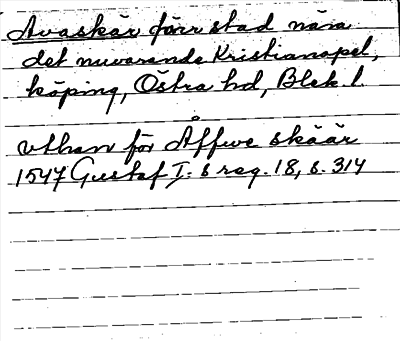 Avaskär förr stad nära
det nuvarande Kristianopel,
köping, Östra hd, Blek. l.
vthan för Affwe skäär
1547 Gustaf I:s reg. 18, s. 314